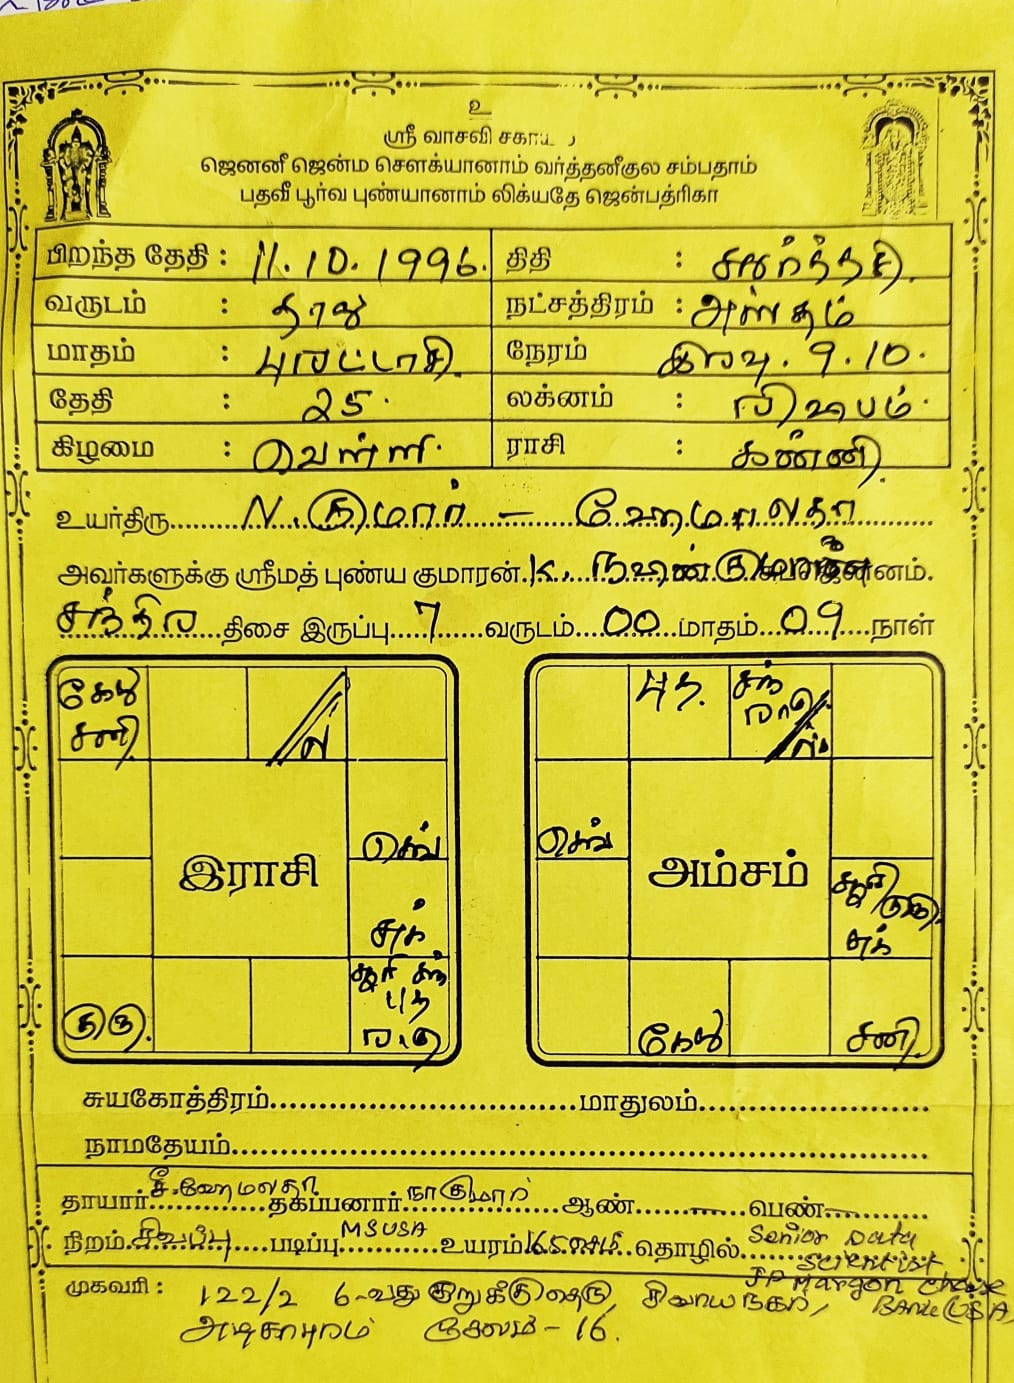 உ
ஸ்ரீ வாசவி
ஜெனனீ ஜென்ம சௌக்யானாம் வர்த்தனீகுல சம்பதாம்
பதவீ பூர்வ புண்யானாம் லிக்யதே ஜென்பத்ரிகா
பிறந்த தேதி : 11.10.1996. திதி : சதுர்த்தசி.
வருடம் : தாது நட்சத்திரம் : அஸ்தம்
மாதம் : புரட்டாசி. நேரம் இரவு. 9.10.
தேதி : 25. லக்னம் : ரிஷபம்.
கிழமை : வெள்ளி. ராசி : கன்னி.
உயர்திரு N. குமார் – ஹேமலதா
அவர்களுக்கு ஸ்ரீமத் புண்ய குமாரன். K.
சந்திர திசை இருப்பு 7 வருடம் 00 மாதம் 09 நாள்
கேது சனி ல புத சந் ராகு ல
செவ் செவ்
இராசி அம்சம்
சுக் சூரி குரு சுக்
குரு சூரி சந் புத ராகு கேது சனி
சுயகோத்திரம் மாதுலம்
நாமதேயம்
தாயார் சீ.ஹேமலதா தகப்பனார் நா.குமார் ஆண் பெண்
நிறம் சிவப்பு படிப்பு MS USA உயரம் 165 தொழில் Senior Data
Scientist
JP Margon Chase
முகவரி : 122/2 6-வது குறுக்குதெரு, சிவாயநகர், Bank USA,
சேலம் – 16.